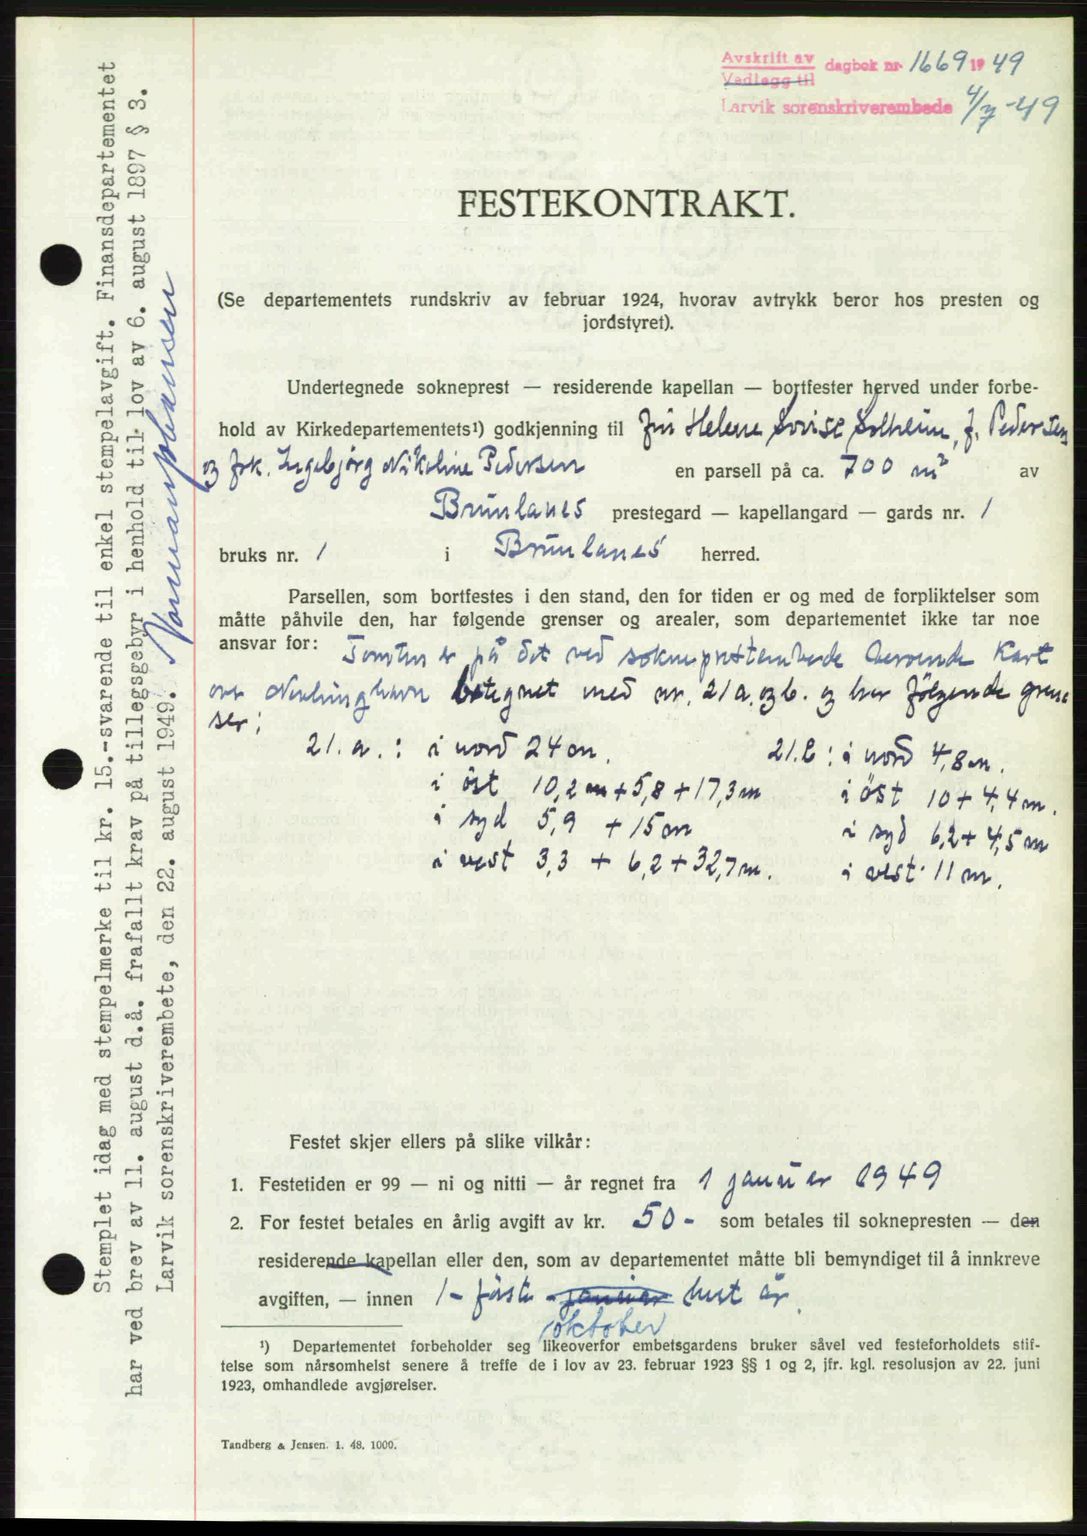 Avskrift av dagbok nr 1669 1949
Vedlegg til
Larvik sorenskriverembede 4/7-49
FESTEKONTRAKT.
(Se departementets rundskriv av februar 1924, hvorav avtrykk beror hos presten og
jordstyret).
Undertegnede sokneprest — residerende kapellan — bortfester herved under forbe-
hold av Kirkedepartementets¹) godkjenning til Fru Helene Lovise Solheim, f. Pedersen
og frk. Ingebjörg Nikoline Pedersen en parsell på ca. 700 m² av
Brunlanes prestegard — kapellangard — gards nr. 1
bruks nr. 1 i Brunlanes herred.
Parsellen, som bortfestes i den stand, den for tiden er og med de forpliktelser som
måtte påhvile den, har følgende grenser og arealer, som departementet ikke tar noe
ansvar for: Tomten er på det ved sokneprestembede beroende Kart
over Nevlunghavn betegnet med nr. 21a. og b. og har följende gren-
ser:
21. a. : i nord 24 m. 21.b : i nord 4,8 m.
i öst 10,2 m + 5,8 + 17,3 m i öst 10 + 4,4 m.
i syd 5,9 + 15 m i syd 6,2 + 4,5 m
i vest 3,3 + 6,2 + 32,7 m. i vest 11 m.
Festet skjer ellers på slike vilkår:
1. Festetiden er 99 — ni og nitti — år regnet fra 1 januar 1949
2. For festet betales en årlig avgift av kr. 50 - som betales til soknepresten — den
residerende kapellan eller den, som av departementet måtte bli bemyndiget til å innkreve
avgiften, — innen 1- förste januar hvert år.
oktober
¹) Departementet forbeholder seg likeoverfor embetsgardens bruker såvel ved festeforholdets stif-
telse som nårsomhelst senere å treffe de i lov av 23. februar 1923 §§ 1 og 2, jfr. kgl. resolusjon av 22. juni
1923, omhandlede avgjørelser.
Tandberg & Jensen. 1. 48. 1000.
Stemplet idag med stempelmerke til kr. 15.-svarende til enkel stempelavgift. Finansdepartementet
har ved brev av 11. august d.å. frafallt krav på tillegsgebyr i henhold til lov av 6. august 1897 § 3.
Larvik sorenskriverembete, den 22. august 1949.